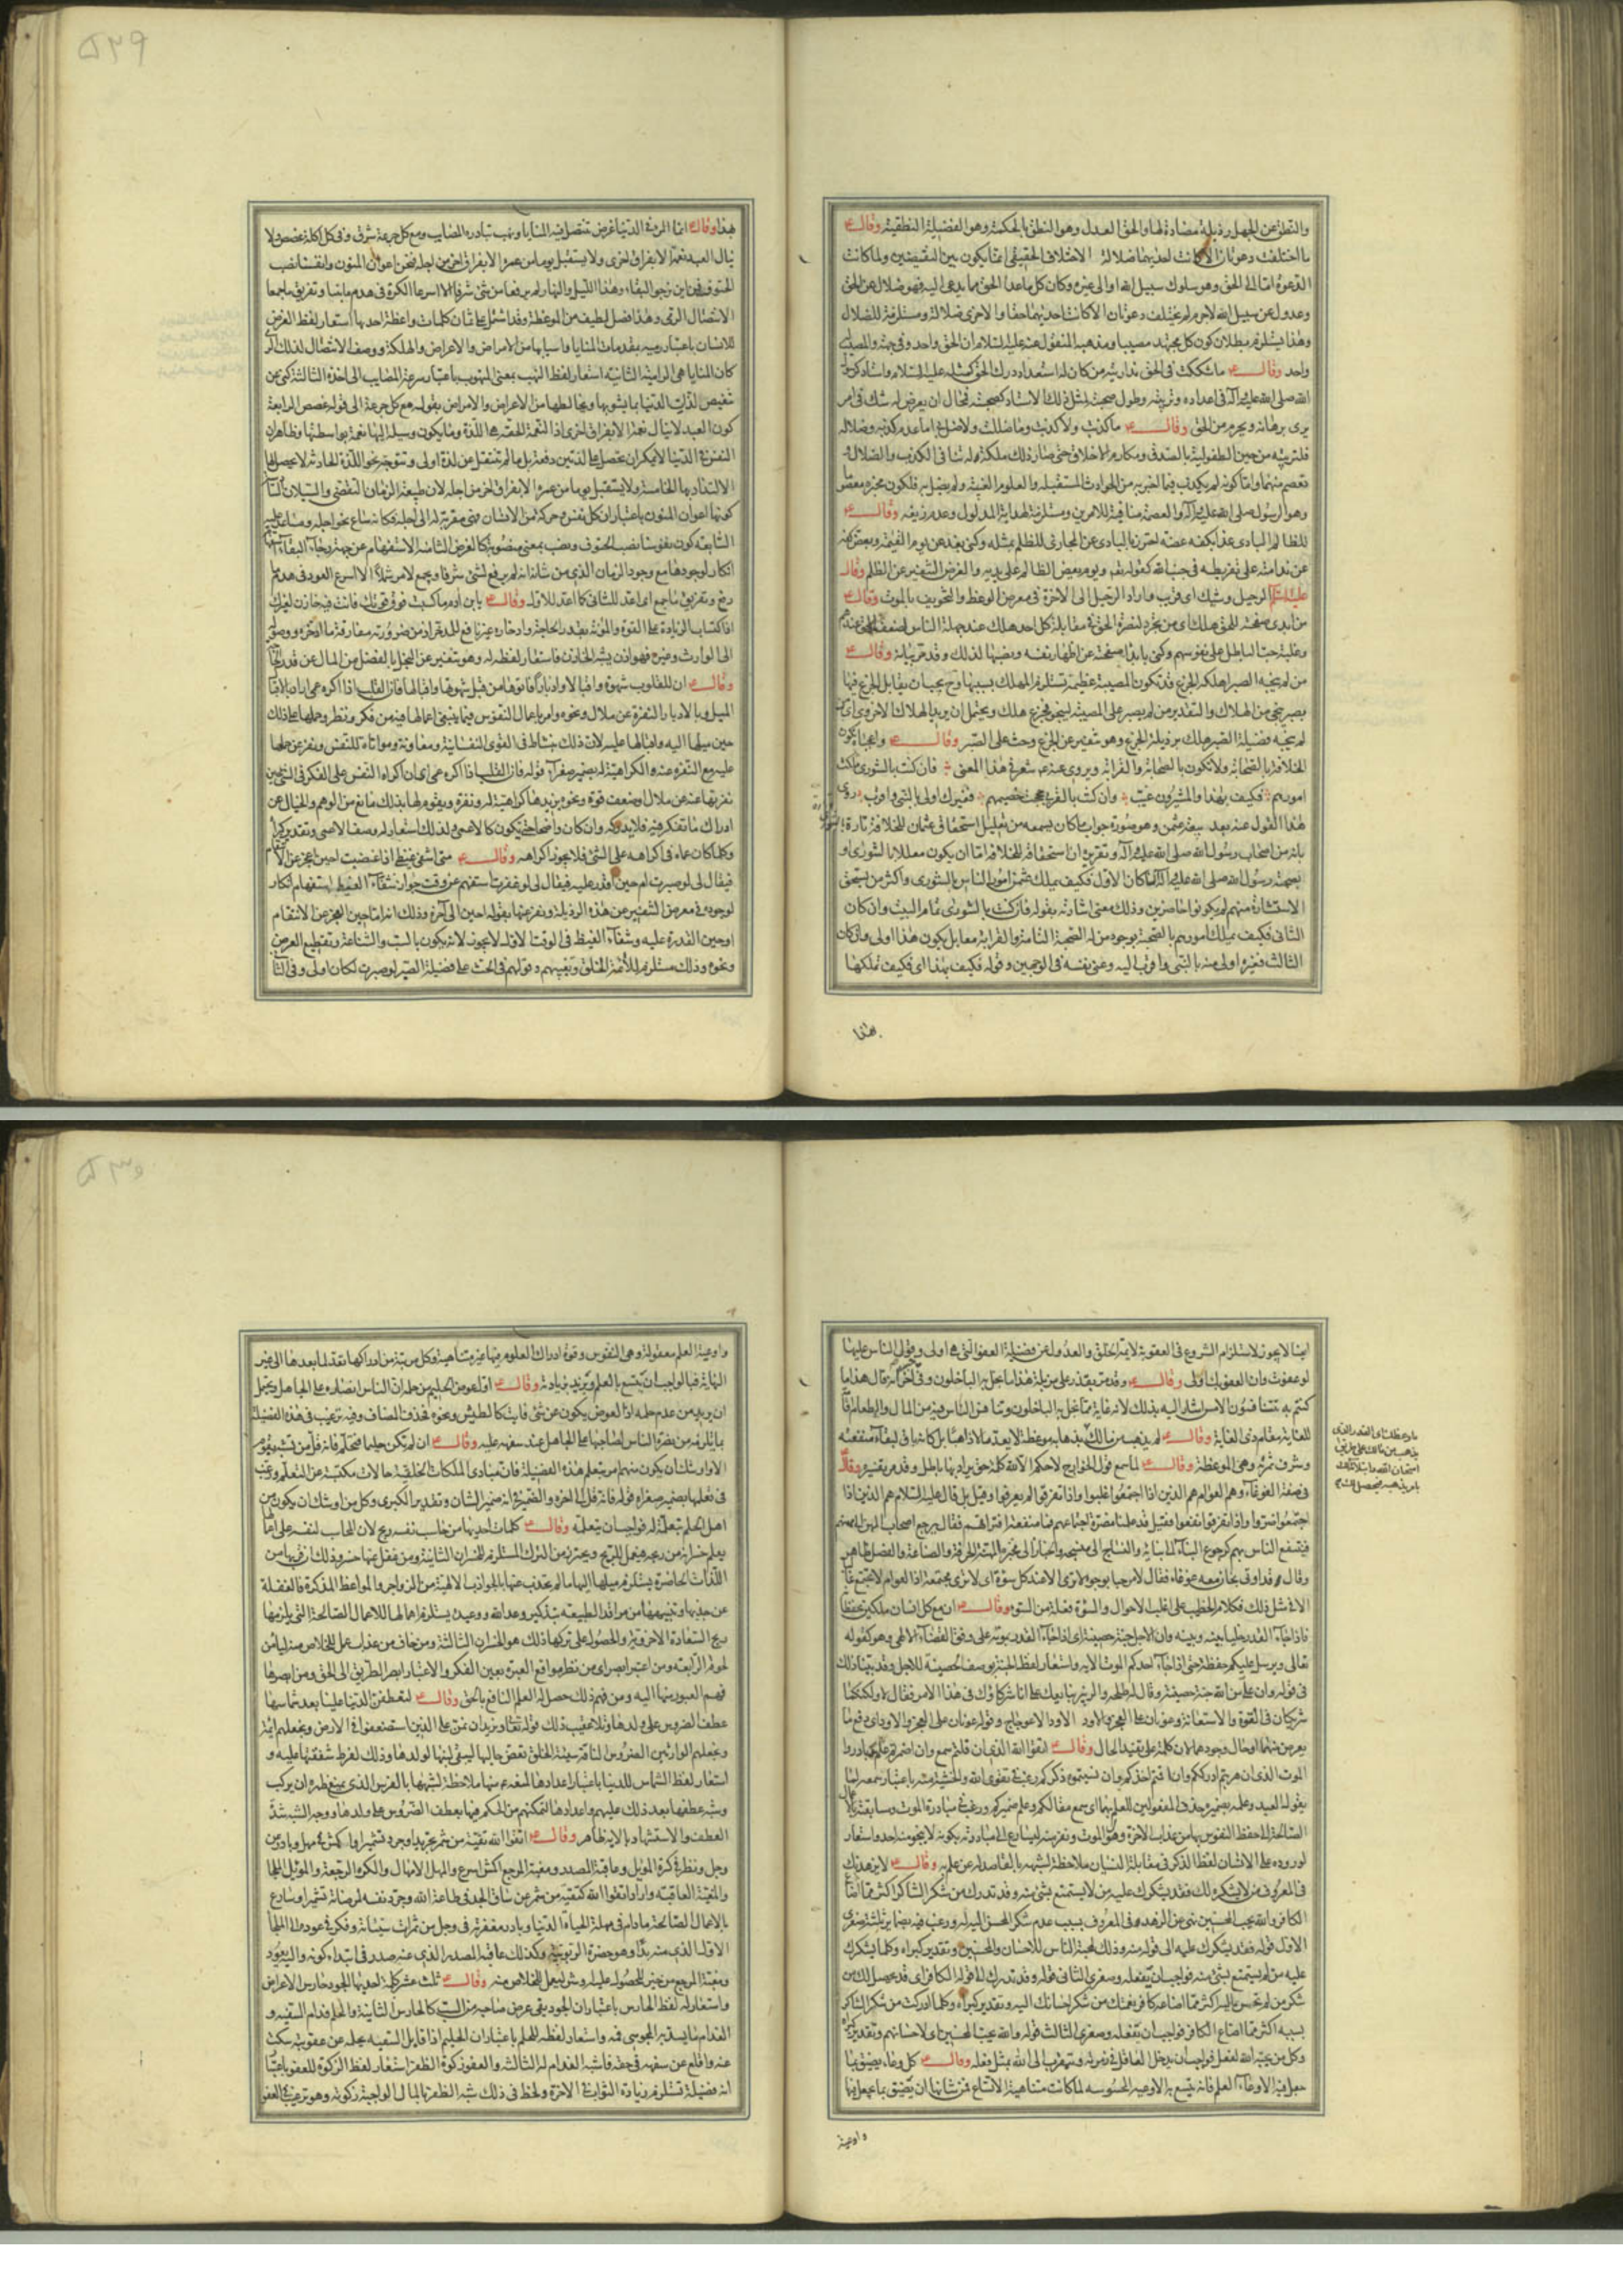 والنطق عن الجهل رذيلة مضادة لها والحق العدل وهو النطق بالحكمة وهو الفضيلة النطقية وقال ع
ما اختلفت دعوتان الا كانت احديهما ضلالة الاختلاف الحقيقى انما يكون بين النقيضين ولما كانت
الدعوة اما الى الحق وهو سلوك سبيل الله او الى غيره وكان كل ما عدا الحق مما يدعى اليه فهو ضلال عن الحق
وعدول عن سبيل الله لاجرم لم يختلف دعوتان الا كانت احديهما حقا والاخرى ضلالة ومستلزمة للضلال
وهذا يستلزم بطلان كون كل مجتهد مصيبا ومذهبه المنقول عنه عليه السلام ان الحق واحد وفى جهة والمصيب
واحد وقال ع ما شككت فى الحق مذ اريته من كان له استعداد درك الحق كمثله عليه السلام واستاد كرسول
الله صلى الله عليه وآله فى اعداده وتربيته وطول صحبته لمثل ذلك الاستاد كصحبته فمحال ان يعرض له شك فى امر
يرى برهانه ويجزم من الحق وقال ع ما كذبت ولا كذبت وما ضللت ولا ضل بى اما عدم كذبه وضلاله
فلتربيته من حين الطفولية بالصدق ومكارم الاخلاق حتى صار ذلك ملكة له تنافى الكذب والضلال و
تعصم منهما واما كونه لم يكذب فيما اخبر به من الحوادث المستقبلة والعلوم الغيبية ولم يضل به فلكون مخبره معصوم
وهو الرسول صلى الله عليه وآله والعصمة منافية للامرين ومستلزمة لهداية المدلول وعدم زيغه وقال ع
للظالم البادى غدا بكفه عضة احترز بالبادى عن المجازى للظلم بمثله وكنى بغد عن يوم القيمة وبعض كفه
عن ندامته على تفريطه فى جنب الله كقوله تعالى ويوم يعض الظالم على يديه والغرض التنفير عن الظلم وقال
عليه السلم الرحيل وشيك اى قريب واراد الرحيل الى الاخرة فى معرض الوعظ والتخويف بالموت وقال ع
من ابدى صفحته للحق هلك اى من تجرد لنصرة الحق فى مقابلة كل احد هلك عند جهلة الناس لضعف الحق عندهم
وغلبة حب الباطل على نفوسهم وكنى بابداء صفحته عن اظهار نفسه ونصبها لذلك وقد مر بيانه وقال ع
من لم ينجه الصبر اهلكه الجزع قد تكون المصيبة عظيمة تستلزم الهلاك بسببها وح يجب ان يقابل الجزع فيها
بصبر ينجى من الهلاك والتقدير من لم يصبر على المصيبة لينجو فجزع هلك ويحتمل ان يريد الهلاك الاخروى اى من
لم ينجه فضيلة الصبر هلك برذيلة الجزع وهو تنفير عن الجزع وحث على الصبر وقال ع واعجباه تكون
الخلافة بالصحابة ولا تكون بالصحابة والقرابة ويروى عنه ع شعر فى هذا المعنى فان كنت بالشورى ملكت
امورهم فكيف بهذا والمشيرون غيب وان كنت بالقربى حججت خصيمهم فغيرك اولى بالنبى واقرب روى
هذا القول عنه بعد بيعة عثمن وهو صورة جواب ما كان يسمعه من تعليل استحقاق عثمان للخلافة تارة بالشورى وتارة
بانه من اصحاب رسول الله صلى الله عليه وآله وتقريره ان استحقاقه للخلافة اما ان يكون معللا بالشورى او
بصحبة رسول الله صلى الله عليه وآله فان كان الاول فكيف يملك عثمن امور الناس بالشورى واكثر من يستحق
الاستشارة منهم لم يكونوا حاضرين وذلك معنى اشارته بقوله فان كنت بالشورى تمام البيت وان كان
الثانى فكيف يملك امورهم بالصحبة بوجود من له الصحبة التامة والقرابة مقابل يكون هذا اولى وان كان
الثالث فغيره اولى منه بالنبى واقرب اليه وعنى نفسه فى الوجهين وقوله فكيف بهذا اى فكيف تملكها
بهذا
بهذا وقال ع انما المرء فى الدنيا غرض تنتضل فيه المنايا ونهب تبادره المصايب ومع كل جرعة شرق وفى كل اكلة غصص ولا
ينال العبد نعمة الا بفراق اخرى ولا يستقبل يوما من عمره الا بفراق اخر من اجله فنحن اعوان المنون وانفسنا نصب
الحتوف فمن اين نرجو البقاء وهذا الليل والنهار لم يرفعا من شئ شرفا الا اسرعا الكرة فى هدم ما بنيا وتفريق ما جمعا
الانتضال الرمى وهذا فصل لطيف من الموعظة وقد اشتمل على ثمان كلمات واعظة احديها استعار لفظ الغرض
للانسان باعتبار رميه بمقدمات المنايا واسبابها من الامراض والاعراض والمهلكة ووصف الانتضال لذلك الرمى
كان المنايا هى الرامية الثانية استعار لفظ النهب بمعنى المنهوب باعتبار سرعة المصايب الى اخذه الثالثة كنى عن
تنغيص لذات الدنيا بما يشوبها ويخالطها من الاعراض والامراض بقوله مع كل جرعة الى قوله غصص الرابعة
كون العبد لا ينال نعمة الا بفراق اخرى اذ النعمة الحقة هى اللذة وما يكون وسيلة اليها نعمة بواسطتها وظاهر ان
النفس فى الدنيا لا يمكن ان تحصل على لذتين دفعة بل ما لم تنتقل عن لذة اولى وتتوجه نحو اللذة الحادثة لا يحصل لها
الالتذاذ بها الخامسة ولا يستقبل يوما من عمره الا بفراق اخر من اجله لان طبيعة الزمان التقضى والسيلان السادسة
كوننا اعوان المنون باعتبار ان كل نفس وحركة من الانسان فهى مقربة له الى اجله فكانه ساع نحو اجله ومساعد عليه
السابعة كون نفوسنا نصب الحتوف ونصب بمعنى منصوبة كالغرض الثامنة الاستفهام عن جهة رجاء البقاء استفهام
انكار لوجودها مع وجود الزمان الذى من شانه انه لم يرفع لشئ شرفا ويجمع لامر شملا الا اسرع العود فى هدم ما
رفع وتفريق ما جمع اى اعد للثانى كما اعد للاول وقال ع يابن ادم ما كسبت فوق قوتك فانت فيه خازن لغيرك
اذ اكتساب الزيادة على القوة والمؤنة بقدر الحاجة وادخاره غير نافع للمدخر
الى الوارث وغيره فهو اذن يشبه الخازن فاستعار لفظه له وهو تنفير عن البخل بالفضل من المال عن قدر الحاجة
وقال ع ان للقلوب شهوة واقبالا وادبارا فأتوها من قبل شهوتها واقبالها فان القلب اذا اكره عمى اراد بالاقبال
الميل وبالادبار النفرة عن ملال ونحوه وامر باعمال النفوس فيما ينبغى اعمالها فيه من فكر ونظر وحملها على ذلك
حين ميلها اليه واقبالها عليه لان ذلك بنشاط فى القوى النفسانية ومعاونة ومواتاة للنفس ونفر عن حملها
عليه مع النفرة عنه والكراهية له بضمير صغراه قوله فان القلب اذا اكره عمى اى ان اكراه النفس على الفكر فى الشئ حين
نفرتها عنه عن ملال او ضعف قوة ونحوه يزيدها كراهية له ونفرة
ادراك ما تفكر فيه فلا يدركه وان كان واضحا حتى يكون كالاعمى فلذلك استعار له وصف الاعمى وتقدير كبراه
وكلما كان عماء فى اكراهه على الشئ فلا يجوز اكراهه وقال ع متى اشفى غيظى اذا غضبت احين اعجز عن الانتقام
فيقال لى لو صبرت ام حين اقدر عليه فيقال لى لو غفرت استفهم عن وقت جواز شفاء الغيظ استفهام انكار
لوجوده فى معرض التنفير عن هذه الرذيلة ونفر عنها بقوله احين الى آخره وذلك انه اما حين العجز عن الانتقام
او حين القدرة عليه وشفاء الغيظ فى الوقت الاول لا يجوز لانه يكون بالسب والشناعة وتقطيع العرض
ونحوه وذلك مستلزم لائمة الخلق وتعييبهم وقولهم فى الحث على فضيلة الصبر لو صبرت لكان اولى وفى الثانى
ايضا لا يجوز لاستلزام الشروع فى العقوبة لائمة الخلق والعدول عن فضيلة العفو التى هى اولى وقول الناس عليها
لو عفوت فان العفو بك اولى وقال ع وقد مر بقذر على مزبلة هذا ما بخل به الباخلون وفى خبر آخر انه قال هذا ما
كنتم به تتنافسون الامس اشار اليه بذلك لانه غاية ما بخل به الباخلون وتنافس الناس فيه من المال والطعام
للغاية مقام ذى الغاية وقال ع لم يذهب من مالك ما وعظك
وشرف ثمرته وهى الموعظة وقال ع لما سمع قول الخوارج لا حكم الا لله كلمة حق يراد بها باطل وقد مر تفسيره وقال ع
فى صفة الغوغاء وهم العوام هم الذين اذا اجتمعوا غلبوا واذا تفرقوا لم يعرفوا وقيل بل قال عليه السلام هم الذين اذا
اجتمعوا ضروا واذا تفرقوا نفعوا فقيل قد علمنا مضرة اجتماعهم فما منفعة افتراقهم فقال يرجع اصحاب المهن الى مهنهم
فينتفع الناس بهم كرجوع البناء الى بنائه والنساج الى منسجه والخباز الى مخبزه المهنة الحرفة والصناعة والفضل ظاهر
وقال ع وقد اوتى بجان ومعه غوغاء فقال لا مرحبا بوجوه لا ترى الا عند كل سوءة اى لا ترى مجتمعة اذ العوام لا تجتمع غالبا
الا فى مثل ذلك فكلامه الخطيب على اغلب الاحوال والسوءة فعلة من السوء وقال ع ان مع كل انسان ملكين يحفظانه
فاذا جاء القدر خليا بينه وبينه وان الاجل جنة حصينة اى اذا جاء القدر بموته على وفق القضاء الالهى وهو كقوله
تعالى ويرسل عليكم حفظة حتى اذا جاء احدكم الموت الاية واستعار لفظ الجنة بوصف الحصينة للاجل وقد بينا ذلك
فى قوله وان على من الله جنة حصينة وقال له طلحة والزبير نبايعك على انا شركاؤك فى هذا الامر فقال لا ولكنكما
شريكان فى القوة والاستعانة وعونان على العجز والاود الاود الاعوجاج وقوله عونان على العجز والاود اى دفع ما
يعرض منهما او حال وجودهما لان كلمة على تفيد الحال وقال ع اتقوا الله الذى ان قلتم سمع وان اضمرتم علم وبادروا
الموت الذى ان هربتم ادرككم وان اقمتم اخذكم وان نسيتموه ذكركم رغب فى تقوى الله والخشية منه باعتبار سمعه لما
يقوله العبد وعلمه بضميره وحذف المفعولين للعلم بهما اى سمع مقالكم وعلم ضميركم ورغب فى مبادرة الموت ومسابقته بالاعمال
الصالحة الى حفظ النفوس بها من عذاب الاخرة وهول الموت
لوروده على الانسان لفظ الذكر فى مقابلة النسيان ملاحظة لشبهه بالقاصد له عن علم به وقال ع لا يزهدنك
فى المعروف من لا يشكره لك فقد يشكرك عليه من لا يستمتع بشئ منه وقد تدرك من شكر الشاكر اكثر مما اضاع
الكافر والله يحب المحسنين نهى عن الزهد فى المعروف بسبب عدم شكر المحسن اليه له ورغب فيه بضماير ثلثة صغرى
الاول قوله فقد يشكرك عليه الى قوله منه وذلك لمحبة الناس للاحسان والمحسنين وتقدير كبراه وكلما يشكرك
عليه من لم يستمتع بشئ منه فواجب ان تفعله وصغرى الثانى قوله وقد تدرك الى قوله الكافر اى قد يحصل لك من
شكر من لم تحسن اليه اكثر مما اضاعه كافر نعمتك من شكر احسانك اليه وتقدير كبراه وكلما ادركت من شكر الشاكر
بسببه اكثر مما اضاع الكافر فواجب ان تفعله وصغرى الثالث قوله والله يحب المحسنين اى لاحسانهم وتقدير كبراه
وكل من يحبه الله لفعل فواجب ان يدخل العاقل فى زمرته ويتقرب الى الله بمثل فعله وقال ع كل وعاء يضيق بما
جعل فيه الا وعاء العلم فانه يتسع به الاوعية المحسوسة لما كانت متناهية الاتساع فمن شانها ان تضيق بما يجعل فيها
واوعية
واوعية العلم معقولة وهى النفوس وقوة ادراك العلوم فيها غير متناهية وكل مرتبة من ادراكها تعد لما بعدها الى غير
النهاية فبالواجب ان يتسع بالعلم ويزيد بزيادته وقال ع اول عوض الحليم من حلمه ان الناس انصاره على الجاهل ويحتمل
ان يريد من عدم حلمه اذ العوض يكون عن شئ فايت كالطيش ونحوه فحذف المضاف وفيه ترغيب فى هذه الفضيلة
بما يلزمه من نصرة الناس لصاحبها على الجاهل عند سفهه عليه وقال ع ان لم تكن حليما فتحلم فانه قل من تشبه بقوم
الا اوشك ان يكون منهم امر بتعلم هذه الفضيلة فان مبادى الملكات الخلقية حالات مكتسبة عن التعلم ورغب
فى تعلمها بضمير صغراه قوله فانه قل الى اخره والضمير فى انه ضمير الشان وتقدير الكبرى وكل من اوشك ان يكون من
اهل الحلم بتعلمه له فواجب ان يتعلمه وقال ع كلمات احديها من حاسب نفسه ربح لان المحاسب لنفسه على اعمالها
يعلم خسرانه من ربحه فيعمل للربح ويحترز من الترك المستلزم للخسران الثانية ومن غفل عنها خسر وذلك
اللذات الحاضرة يستلزم ميلها اليها ما لم تجذب عنها بالجواذب الالهية من الزواجر والمواعظ المذكرة فالغفلة
عن جذبها وتنبيهها من مراقد الطبيعة بتذكير وعد الله ووعيده يستلزم اهمالها للاعمال الصالحة التى يلزمها
ربح السعادة الاخروية والحصول على تركها وذلك هو الخسران الثالثة ومن خاف من عذاب عمل للخلاص منه ليامن
لحوقه الرابعة ومن اعتبر ابصر اى من نظر مواقع العبرة بعين الفكر والاعتبار ابصر الطريق الى الحق ومن ابصرها
فهم العبور منها اليه ومن فهم ذلك حصل له العلم النافع بالحق وقال ع لتعطفن الدنيا علينا بعد شماسها
عطف الضروس على ولدها وتلا عقيب ذلك قوله تعالى ونريد ان نمن على الذين استضعفوا فى الارض ونجعلهم ائمة
ونجعلهم الوارثين الضروس الناقة سيئة الخلق تعض حالبها ليبقى لبنها لولدها وذلك لفرط شفقتها عليه و
استعار لفظ الشماس للدنيا باعتبار
وشبه عطفها بعد ذلك عليهم واعدادها لتمكنهم من الحكم فيها بعطف الضروس على ولدها ووجه الشبه شدة
العطف والاستشهاد بالاية ظاهر وقال ع اتقوا الله تقية من شمر تجريدا وجد تشميرا واكمش فى مهل وبادر عن
وجل ونظر فى كرة الموئل وعاقبة المصدر ومغبة المرجع اكمش اسرع والمهل الامهال والكرة الرجعة والموئل الملجأ
والمغبة العاقبة واراد اتقوا الله كتقية من شمر عن ساق الجد فى طاعة الله وجرد نفسه لمرضاته تشميرا وسارع
بالاعمال الصالحة ما دام فى مهلة الحياة الدنيا وبادر مغفرته فى وجل من ثمرات سيئاته وفكر فى عوده الى الملجأ
الاول الذى منه بدأ وهو حضرة الربوبية وكذلك عاقبة المصدر الذى عنه صدر فى ابتداء كونه واليه يعود
ومغبة المرجع من خير للحصول عليه وشر ليعمل للخلاص منه وقال ع ثلث عشر كلمة احديها الجود حارس الاعراض
واستعار له لفظ الحارس باعتبار ان الجود يقى عرض صاحبه من السب كالحارس الثانية والحلم فدام السفيه و
الفدام ما يسد به المجوسى فمه واستعار لفظه للحلم باعتبار ان الحليم اذا قابل السفيه بحلمه عن عقوبته سكت
عنه واقلع عن سفهه فى حقه فاشبه الفدام له الثالثة والعفو زكوة الظفر استعار لفظ الزكوة للعفو باعتبار
انه فضيلة تستلزم زيادة الثواب فى الاخرة ولحظ فى ذلك شبه الظفر بالمال الواجبة زكوته وهو ترغيب فى العفو